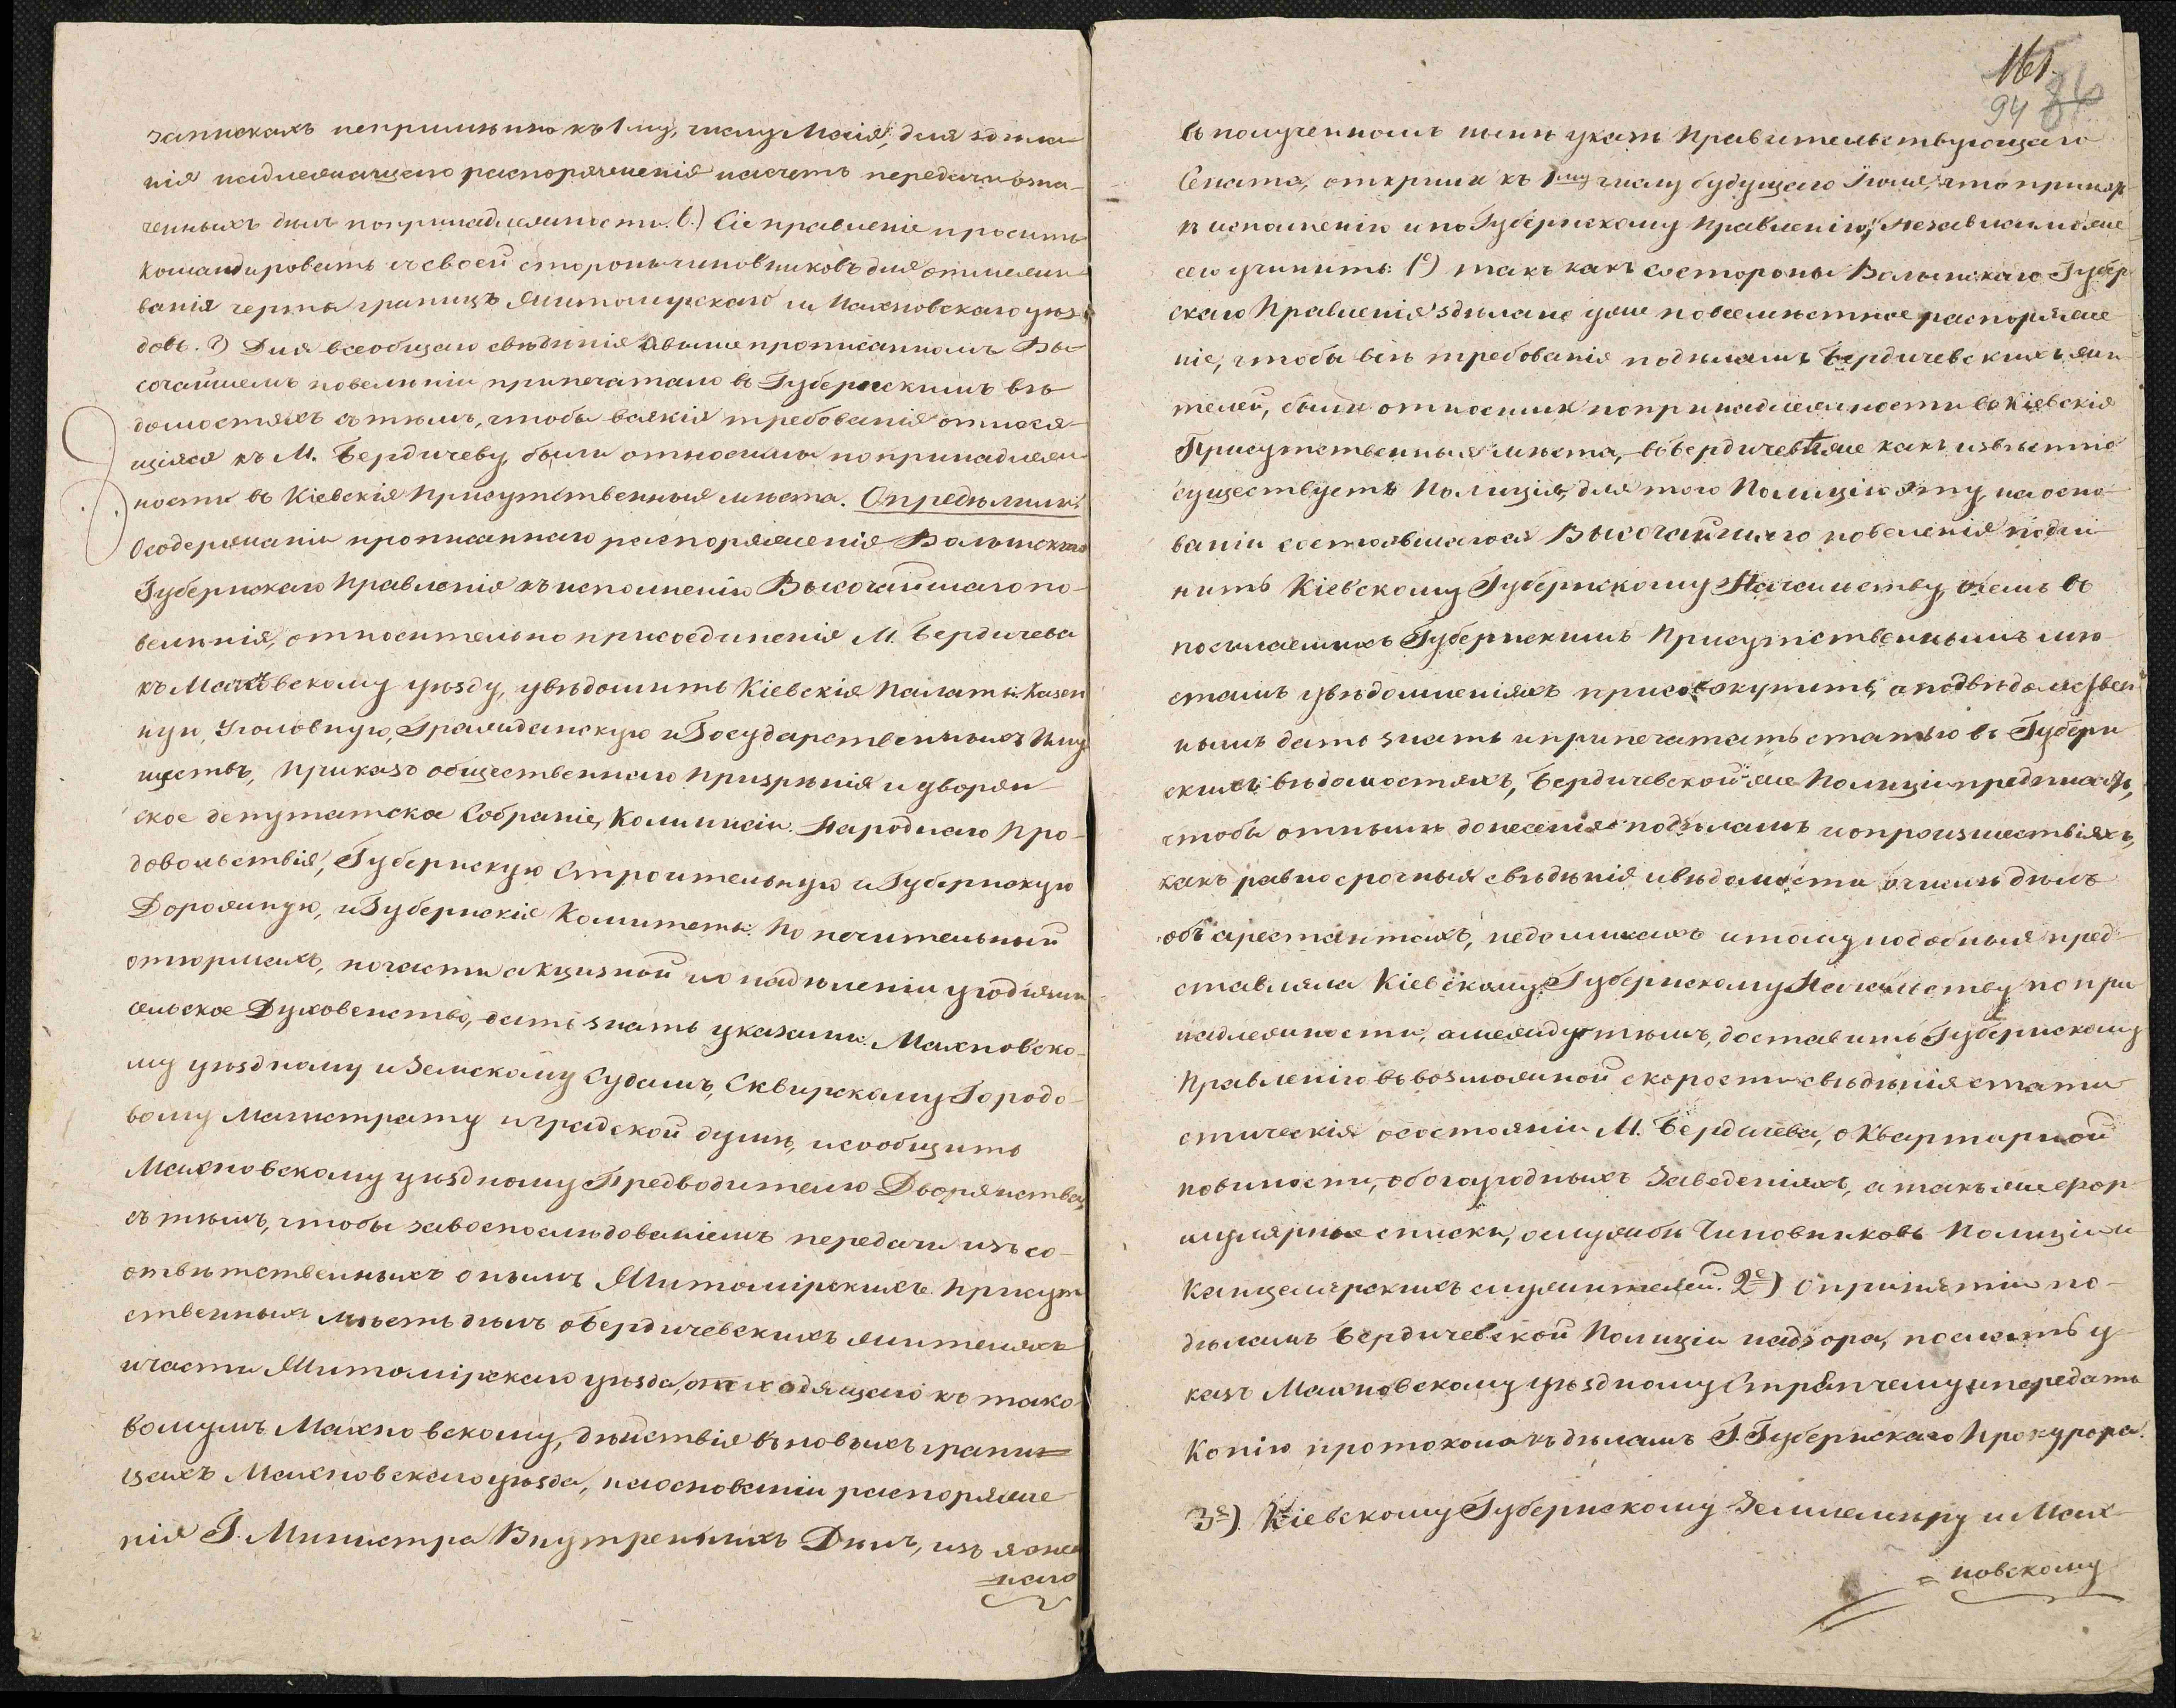 запискахъ непримѣнно къ 1му, числу Маія, для здѣла-
нія надлежащаго распоряженія насчетъ передачи озна-
ченныхъ дѣлъ попринадлежности. 6.) Сіе правленіе проситъ
командировать съсвоей стороны чиновниковъ для отмежи-
ванія черты границъ Житомирскаго и Махновскаго уѣз-
довъ. 7) Для всеобщаго свѣдѣнія овыше прописанномъ Вы-
сочайшемъ повелѣніи припечатано въ Губернскихъ вѣ-
домостяхъ сътѣмъ, чтобы всякія требованія относя-
щіяся къ М. Бердичеву, были относимы попринадлеж-
ности въ Кіевскія Присутственныя мѣста. Опредѣлили:
Осодержаніи прописаннаго распоряженія Волынскаго
Губернскаго Правленія къисполненію Высочайшаго по-
велѣнія, относительно присоединенія М. Бердичева
къ Махновскому уѣзду, увѣдомить Кіевскія Палаты: Казен
ную, Уголовную, Гражданскую и Государственныхъ Иму
ществъ, Приказъ общественнаго Призрѣнія и дворян-
ское депутатское Собраніе, Коммисіи: Народнаго Про-
довольствія, Губернскую Строительную и Губернскую
Дорожную, и Губернскіе Комитеты: Попечительный
отюрмахъ, почасти акцизной и о надѣленіи угодіями
сельское Духовенство, дать знать указами: Махновско-
му уѣздному и Земскому Судамъ, Сквирскому Городо-
вому Магистрату и градской думѣ, и сообщить
Махновскому уѣздному Предводителю Дворянства,
сътѣмъ, чтобы завоспослѣдованіемъ передачи изъ со-
отвѣтственныхъ онымъ Житомірскихъ Присут
ственныхъ мѣстъ дѣлъ о Бердичевскихъ жителяхъ
ичасти Житомірскаго уѣзда, отходящаго къ тако-
вомужъ Махновскому, дѣйствія въновыхъ грани-
цахъ Махновскаго уѣзда, наоснованіи распоряже
нія Г. Министра Внутреннихъ Дѣлъ, изъяснен
наго
161.
94 86
въ полученномъ нынѣ указѣ Правительствующаго
Сената, открыли къ 1му числу будущаго Іюня, что принять
к исполненію и по Губернскому Правленію; Независимо же
сего учинить: 1е) такъ какъ состороны Волынскаго Губерн
скаго Правленія здѣлано уже повсемѣстное распоряже
ніе, чтобы всѣ требованія подѣламъ Бердичевскихъ жи
телей, были относимы попринадлежности въ Кіевскія
Присутственныя мѣста,- въ Бердичевѣже какъ извѣстно
существуетъ Полиція, для того Полицію эту, наосно-
ваніи состоявшагося Высочайшаго повеленія подчи
нить Кіевскому Губернскому Начальству, очемъ въ
посылаемыхъ Губернскимъ Присутственнымъ мѣ-
стамъ увѣдомленіяхъ присовокупить, а подвѣдомствен
нымъ дать знать и припечатать статью въ Губерн
скихъ вѣдомостяхъ, Бердичевской же Полиціи предписать,
чтобы отнынѣ донесенія подѣламъ и опроизшествіяхъ,
какъ равно срочныя свѣдѣнія и вѣдомости очислѣ дѣлъ
объ арестантахъ, недоимкахъ и тому подобныя пред-
ставляла Кіевскому Губернскому Начальству попри
надлежности, а между тѣмъ, доставить Губернскому
Правленію въвозможной скорости свѣдѣнія стати
стическія осостояніи М. Бердичева, о Квартирной
повиности, обогоугодныхъ Заведеніяхъ, а также фор-
мулярные списки, ослужбѣ Чиновниковъ Полиціи и
Канцелярскихъ служителей. 2е) О принятіи по-
дѣламъ Бердичевской Полиціи надзора, послать у-
казъ Махновскому уѣздному Стряпчему и передать
Копію протокола къдѣламъ Г. Губернскаго Прокурора.
3е). Кіевскому Губернскому Землемѣру и Мах-
новскому